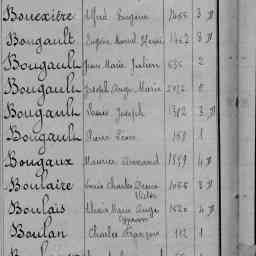 Bouexière Alfred Eugène 1455 3 D
Bougault Eugène Marcel Henri 1462 8 D
Bougault Jean Marie Julien 636 2
Bougault Joseph Ange Marie 0
Bougault Joseph 1312 3 D
Bougault Pierre 168 1
Bougaux Maurice Armand 1899 4 D
Boulaire Louis Charles 1056 3 D
Victor
Boulais Alexis Marie Ange 1620 4 D
Boulan Charles François 112 1